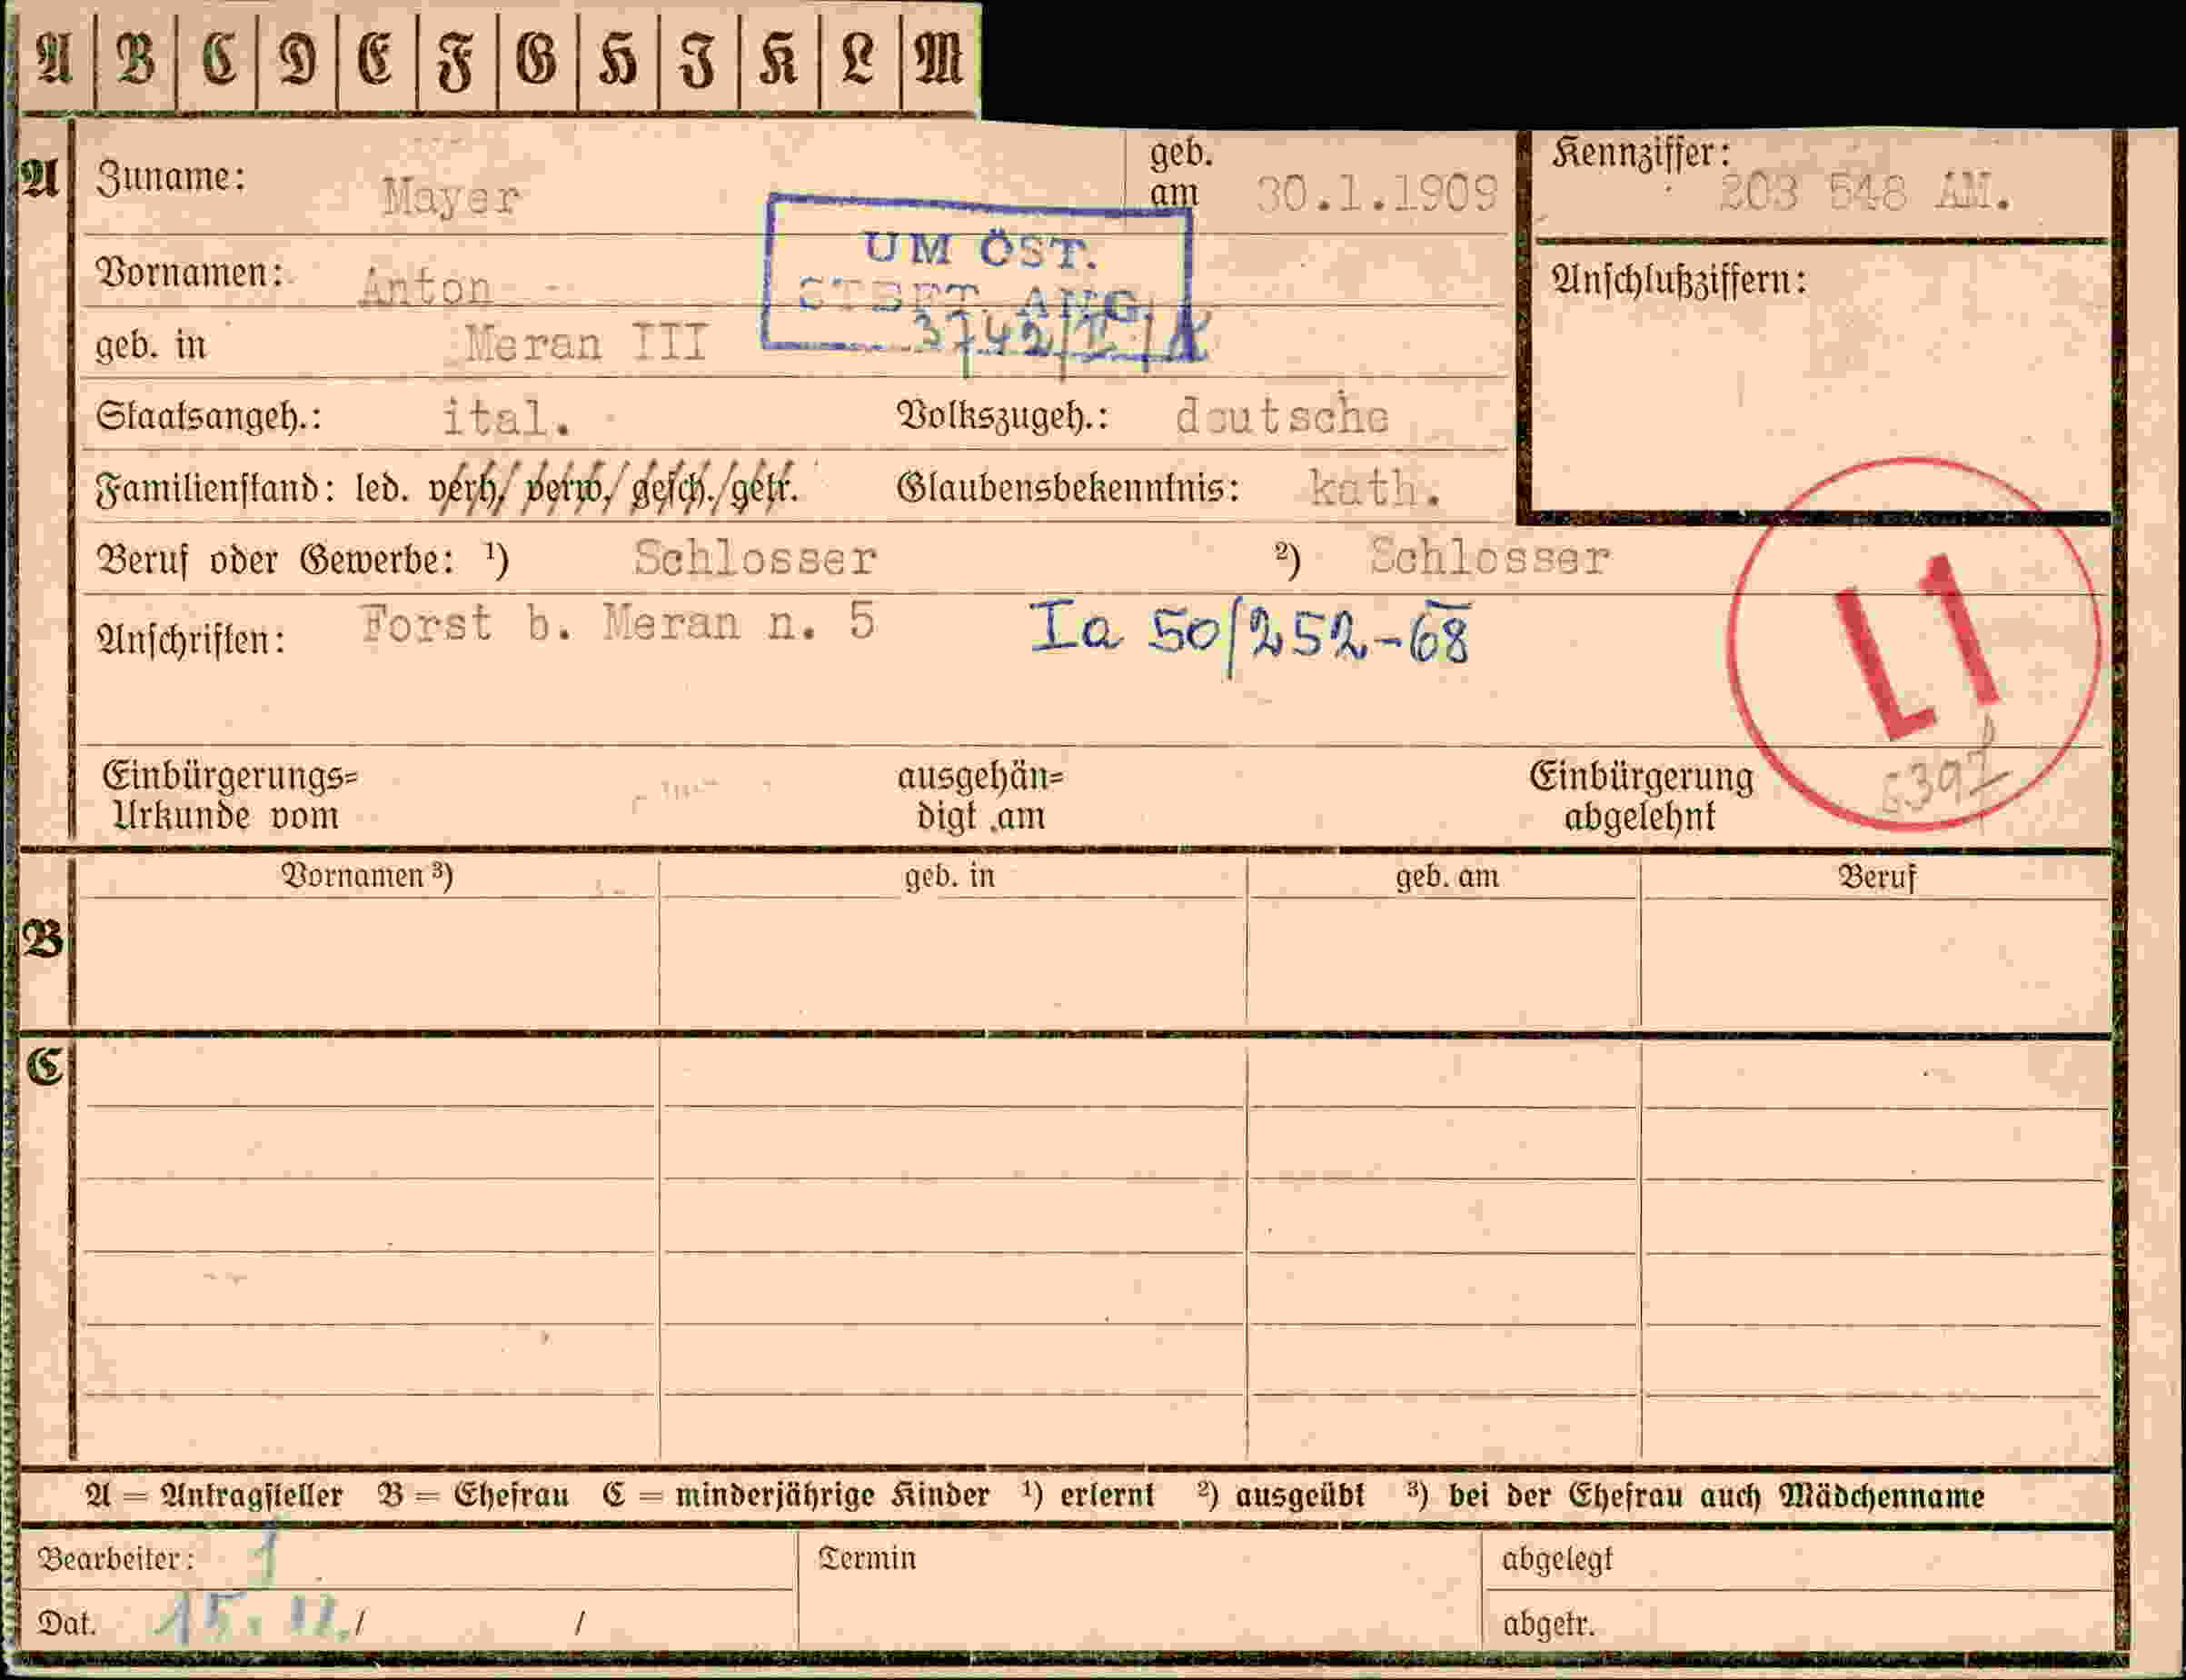 A B C D E F G H I K L M
A Zuname: Mayer geb. am 30.1.1909 Kennziffer: 203 548 AM.
UM ÖST.
STSFT. ANG.
3742/II/
Vornamen: Anton Anschlußziffern:
geb. in Meran III
Staatsangeh.: ital. Volkszugeh.: deutsche
Familienstand: led. verh./verw./gesch./getr. Glaubensbekenntnis: kath.
Beruf oder Gewerbe: ¹) Schlosser ²) Schlosser
Anschriften: Forst b. Meran n. 5 Ia 50/252-68
L1
Einbürgerungs= ausgehän= Einbürgerung
Urkunde vom digt am abgelehnt
Vornamen ³) geb. in geb. am Beruf
B
C
A = Antragsteller B = Ehefrau C = minderjährige Kinder ¹) erlernt ²) ausgeübt ³) bei der Ehefrau auch Mädchenname
Bearbeiter: Termin abgelegt
Dat. 15. 11./ / abgetr.